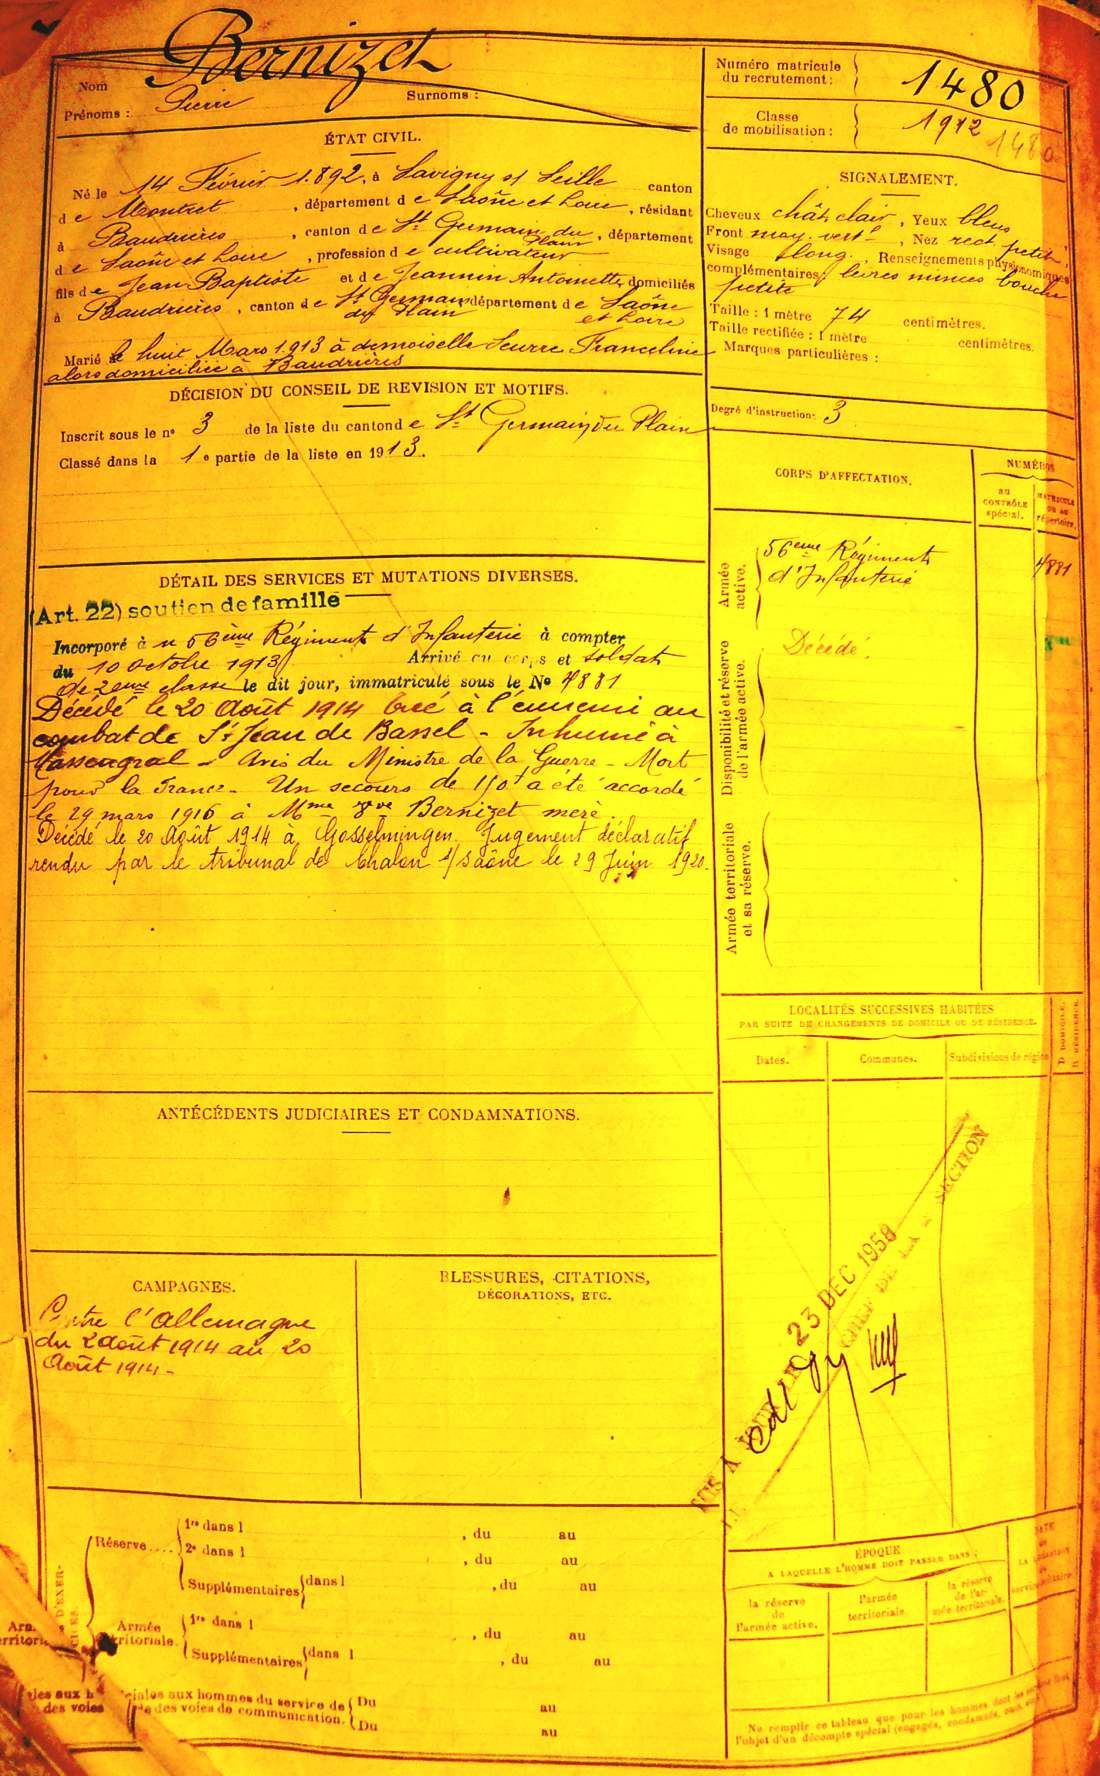 Nom Bernizet
Prénoms : Pierre Surnoms :
Numéro matricule du recrutement : 1480
Classe de mobilisation : 1912
1480
ÉTAT CIVIL.
Né le 14 Février 1892, à Savigny s/ Seille canton
de Montret, département de Saône et Loire, résidant
à Baudrières, canton de St Germain du Plain, département
de Saône et Loire, profession de cultivateur
fils de Jean Baptiste et de Jeannin Antoinette, domiciliés
à Baudrières, canton de St Germain du Plain département de Saône et Loire
Marié le huit Mars 1913 à demoiselle Seurre Franceline
alors domiciliée à Baudrières
SIGNALEMENT.
Cheveux chât. clair, Yeux bleus
Front moy. vertl, Nez rect. petit,
Visage long. Renseignements physionomiques
complémentaires : lèvres minces bouche
petite
Taille : 1 mètre 74 centimètres.
Taille rectifiée : 1 mètre centimètres.
Marques particulières :
Degré d'instruction : 3
DÉCISION DU CONSEIL DE REVISION ET MOTIFS.
Inscrit sous le no 3 de la liste du canton de St Germain du Plain
Classé dans la 1e partie de la liste en 1913.
DÉTAIL DES SERVICES ET MUTATIONS DIVERSES.
(Art. 22) soutien de famille
Incorporé à u 56ème Régiment d'Infanterie à compter
du 10 octobre 1913 Arrivé au corps et soldat
de 2eme classe le dit jour, immatriculé sous le No 4881
Décédé le 20 Août 1914 tué à l'ennemi au
combat de St Jean de Bassel - Inhumé à
- Avis du Ministre de la Guerre - Mort
pour la France - Un secours de 150f a été accordé
le 29 mars 1916 à Mme Vve Bernizet mère.
Décédé le 20 Août 1914 à Gosselmingen. Jugement déclaratif
rendu par le tribunal de Chalon s/Saône le 29 Juin 1920.
CORPS D'AFFECTATION.
NUMÉROS
au CONTRÔLE spécial.
MATRICULE OU AU répertoire.
Armée active.
56eme Régiment
d'Infanterie
4881
Disponibilité et réserve de l'armée active.
Décédé.
Armée territoriale et sa réserve.
LOCALITÉS SUCCESSIVES HABITÉES
PAR SUITE DE CHANGEMENTS DE DOMICILE OU DE RÉSIDENCE.
Dates. Communes. Subdivisions de région
D DOMICILE.
R RÉSIDENCE.
ANTÉCÉDENTS JUDICIAIRES ET CONDAMNATIONS.
CAMPAGNES.
Contre l'Allemagne
du 2 août 1914 au 20
Août 1914 -
BLESSURES, CITATIONS,
DÉCORATIONS, ETC.
MIS A JOUR LE 23 DEC 1958
CHEF DE SECTION
Réserve....
1re dans l , du au
2e dans l , du au
Supplémentaires dans l , du au
Armée territoriale.
1re dans l , du au
Supplémentaires dans l , du au
aux hommes du service de
des voies de communication.
Du au
Du au
ÉPOQUE
A LAQUELLE L'HOMME DOIT PASSER DANS :
la réserve de l'armée active.
l'armée territoriale.
la réserve de l'armée territoriale.
DATE
Ne remplir ce tableau que pour les hommes dont les
l'objet d'un décompte spécial (engagés, condamnés,